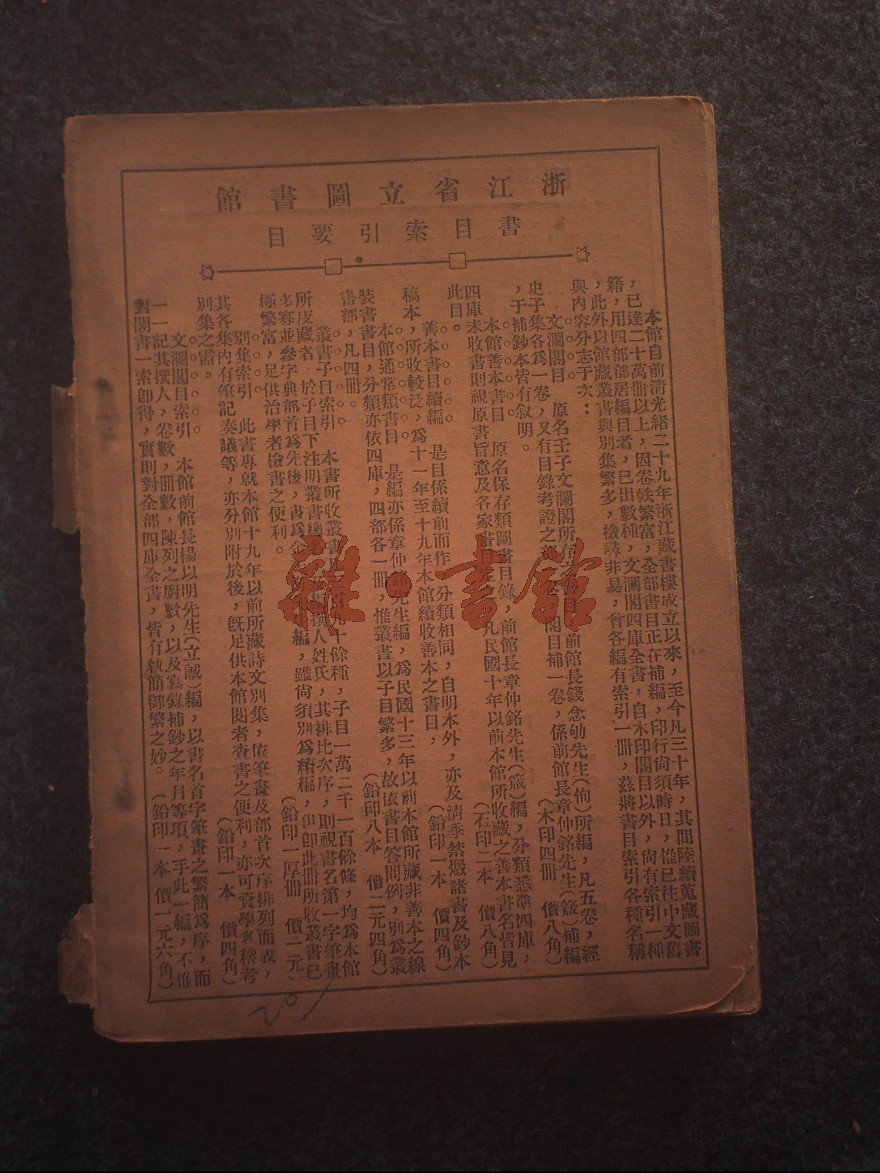 浙江省立圖書館
書目索引要目
本館自前清光緒二十九年浙江藏書樓成立以來，至今凡三十年，其間陸續蒐藏圖書
，已達二十萬冊以上，因卷帙繁富，全部書目正在補編，印行尚須時日，惟已往中文舊
籍，用四部部居編目者，已出數種，文瀾閣四庫全書，自木印閣目以外，尚有索引一種
，此外以館藏叢書與別集繁多，檢尋非易，曾各編有索引一冊，茲將書目索引各種名稱
與內容分志于次：
文瀾閣目　原名壬子文瀾閣所存書目，前館長錢念劬先生（恂）所編，凡五卷，經
史子集各爲一卷，又有目錄考證之 閣目補一卷，係前館長章仲銘先生（箴）補編
，于補鈔本皆有叙明。（木印四冊　價八角）
本館善本書目　原名保存類圖書目錄，前館長章仲銘先生（箴）編，分類悉準四庫，
四庫未收書則視原書旨意及各家書目 凡民國十年以前本館所收藏之善本書名皆見
此目。（石印二本　價八角）
善本書目續編　是目係續前而作，分類相同，自明本外，亦及清季禁燬諸書及鈔本
稿本，所收較泛，爲十一年至十九年本館續收善本之書目，（鉛印一本　價四角）
本館通常類書目　是編亦係章仲銘先生編，爲民國十三年以前本館所藏非善本之線
裝書書目，分類亦依四庫，四部各一冊，惟叢書以子目繁多，故依書目答問例，別爲叢
書部，凡四冊。（鉛印八本　價二元四角）
叢書子目索引　本書所收叢書 十餘種，子目一萬二千一百餘條，均爲本館
所庋藏者，於子目下注明叢書總 撰人姓氏，其排比次序，則視書名第一字筆畫
多寡並參字典部首爲先後，書爲金 編，雖尚須別爲續編，但卽此冊所收叢書已
極繁富，足供治學者檢書之便利。（鉛印一厚冊　價一元）
別集索引　此書專就本館十九年以前所藏詩文別集，依筆畫及部首次序排列而成，
其各集内有筆記奏議等，亦分別附於後，旣足供本館閱者查書之便利，亦可資學者稽考
別集之需。（鉛印一本　價四角）
文瀾閣目索引　本館前館長楊以明先生（立誠）編，以書名首字筆畫之繁簡爲序，而
一一記其撰人，卷數，冊數，陳列之厨數，以及寫錄補鈔之年月等項，手此一編，不惟
對閣書一索卽得，實則對全部四庫全書，皆有執簡御繁之妙。（鉛印一本　價一元六角）
雜·書館
20